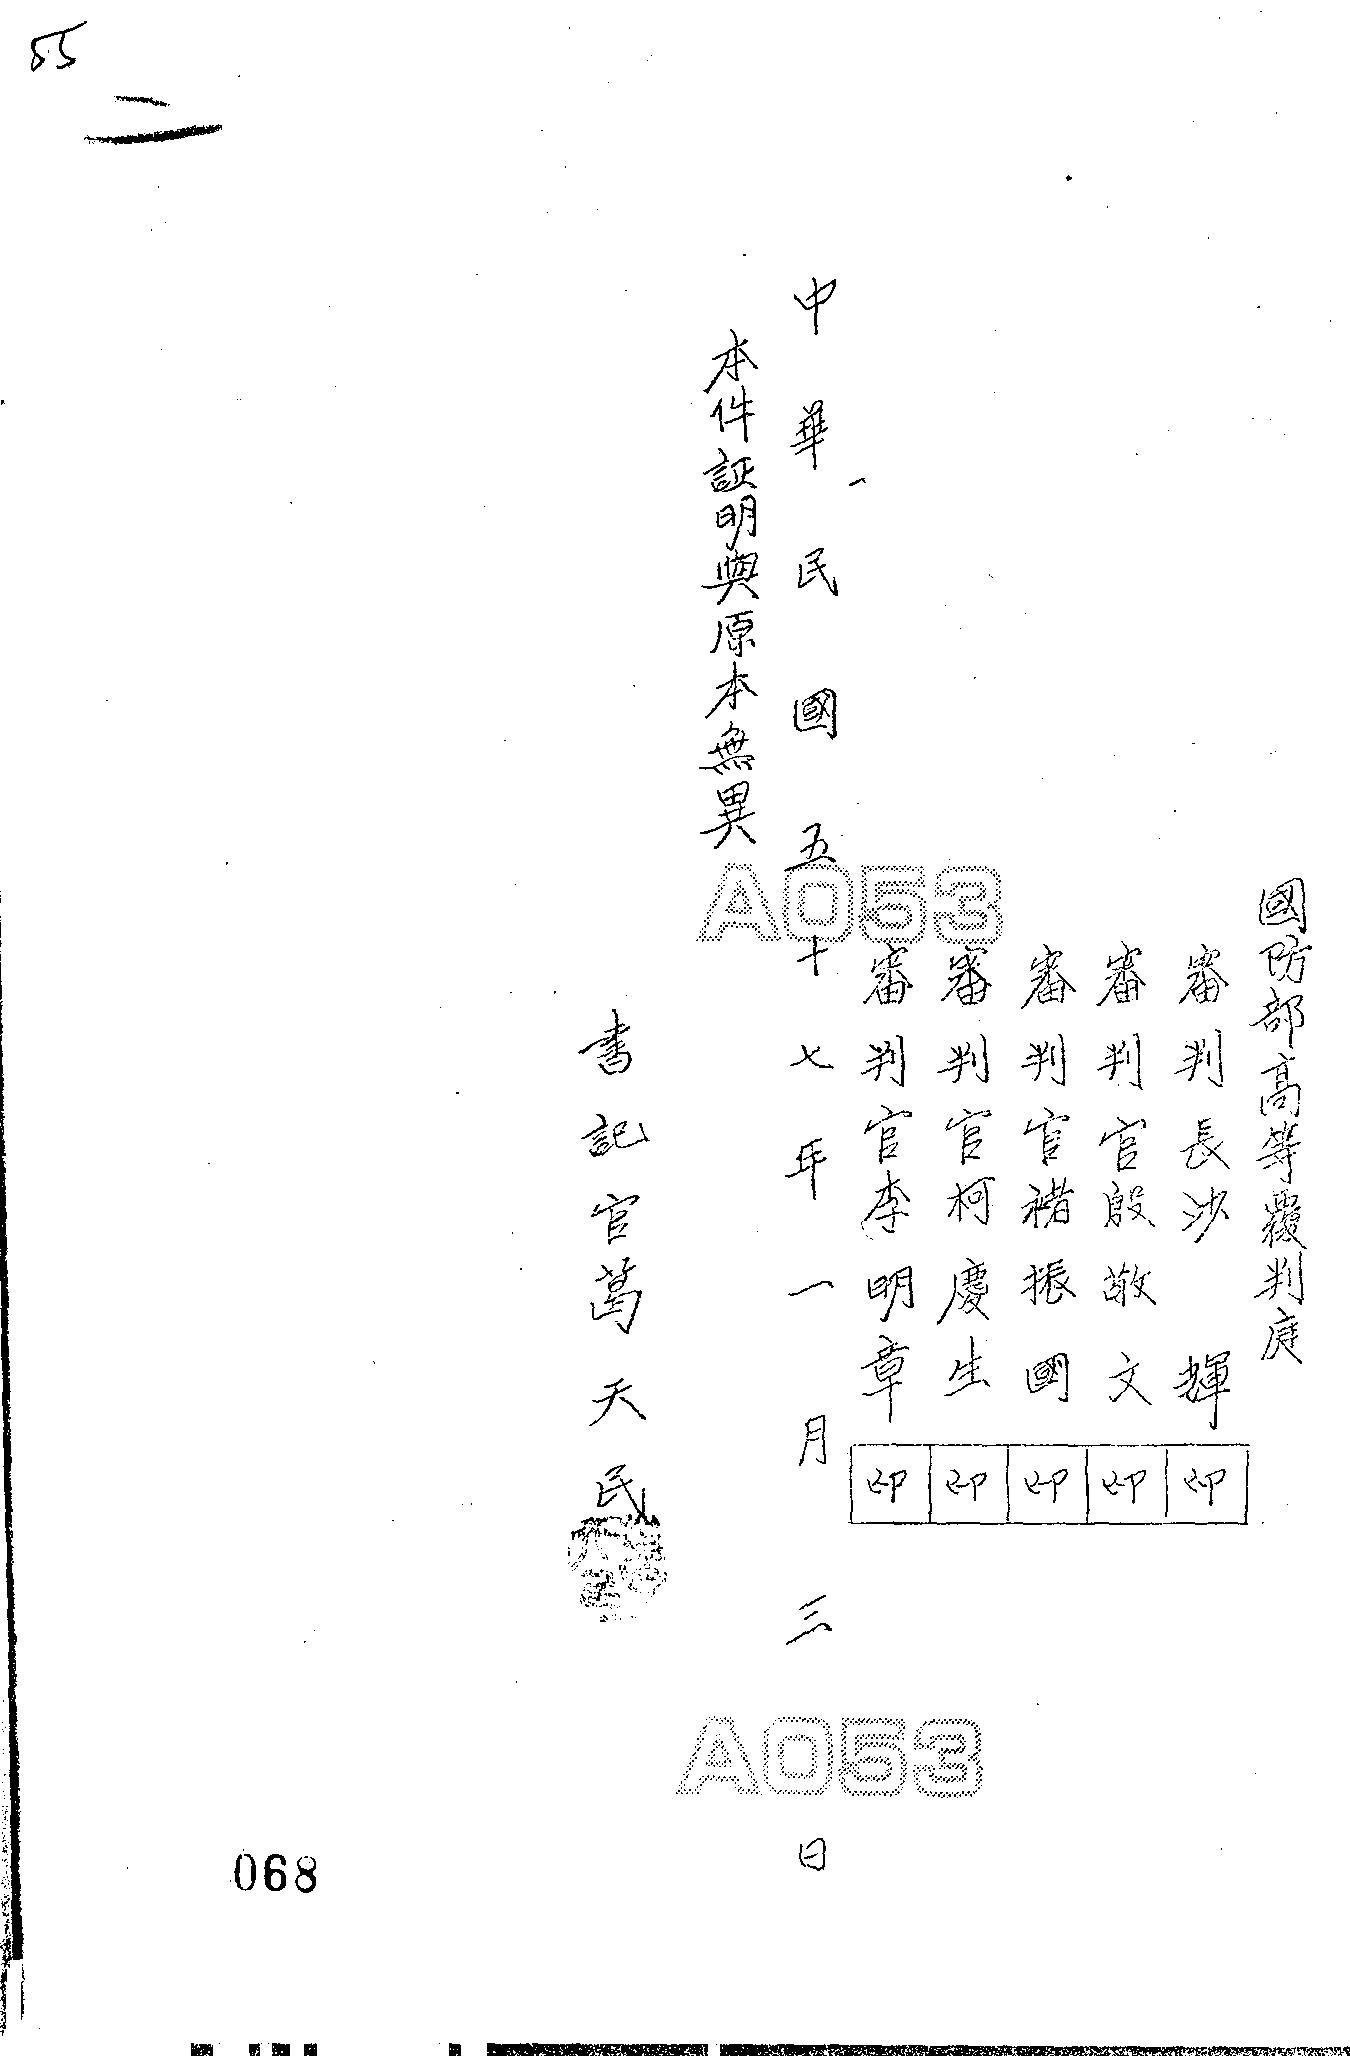 55
國防部高等覆判庭
審判長沙輝印
審判官殷敬文印
審判官褚振國印
審判官柯慶生印
審判官李明章印
中華民國五十七年一月三日
本件証明與原本無異
書記官葛天民
A053
A053
068